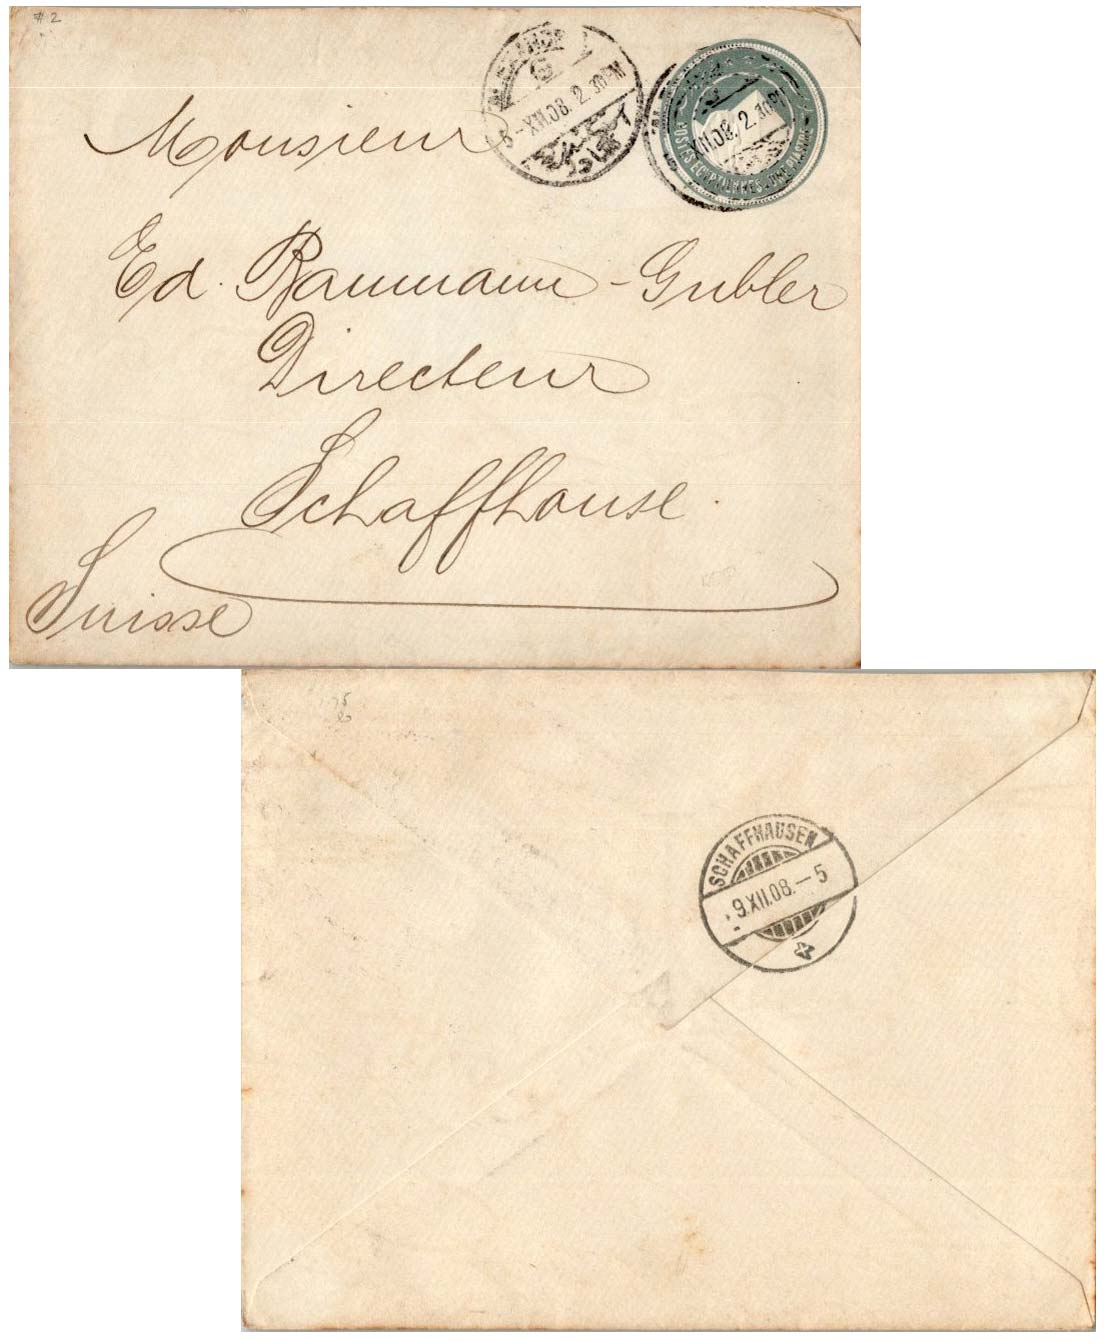 # 2
ALEXAND
G
-XII.08. 2.30PM
XII.08. 2.30PM
POSTES EGYPTIENNES. ONE PIASTRE
Monsieur
Ed. Baumann-Gubler
Directeur
Schaffhouse.
Suisse
SCHAFFHAUSEN
9.XII.08.-5